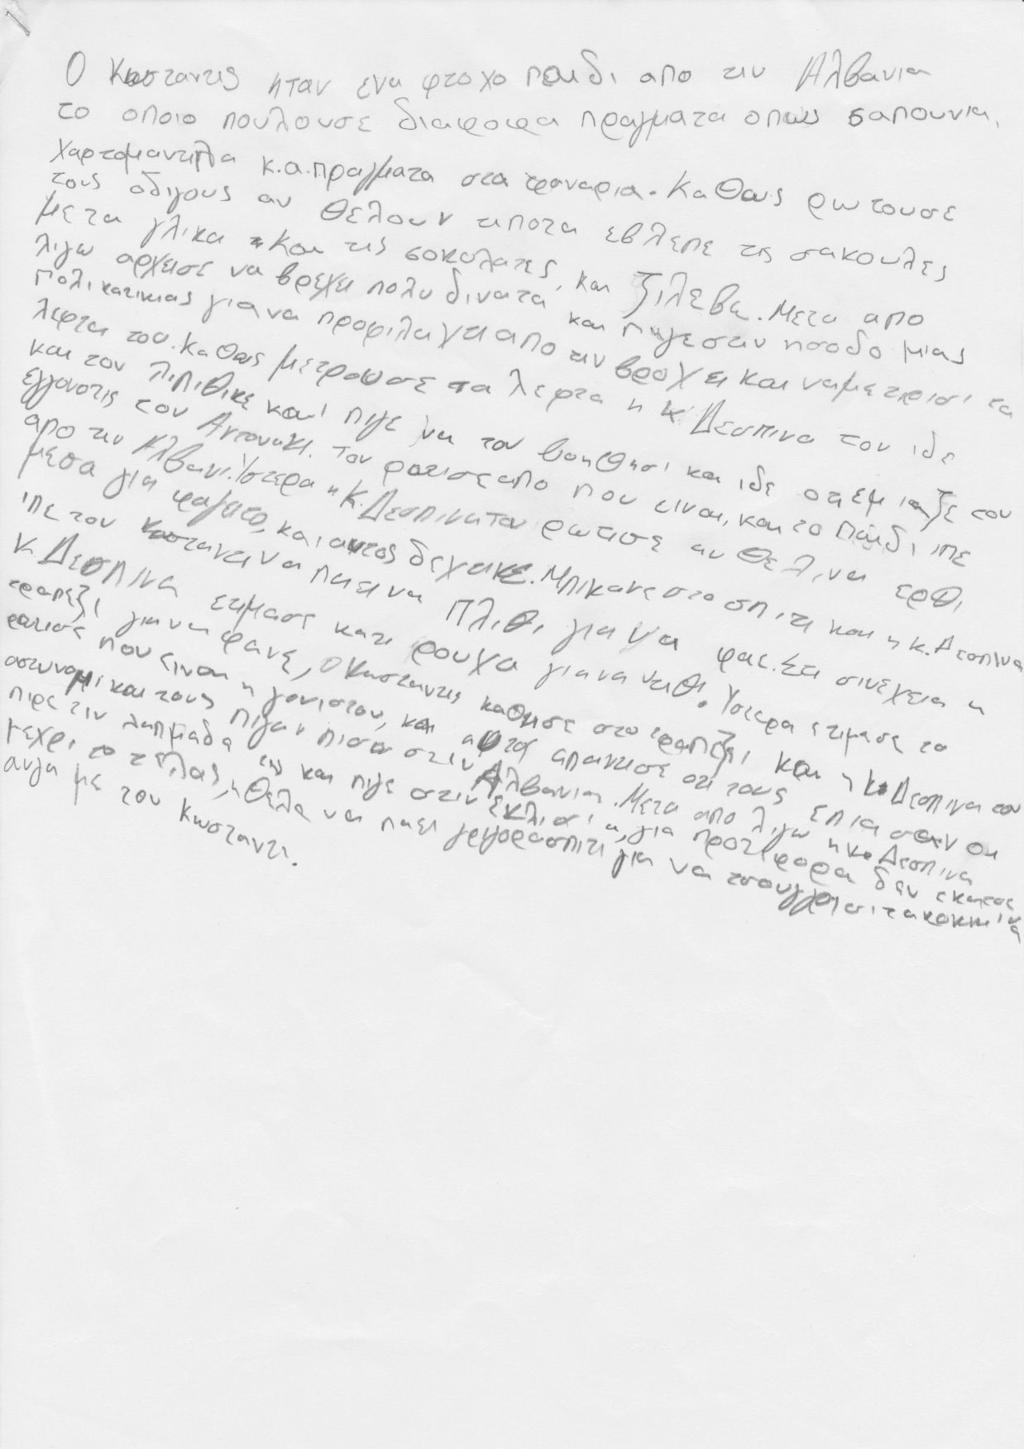 Ο Κωσταντις ηταν ενα φτοχο παιδι απο την Αλβανια
το οποιο πουλουσε διαφορα πραγματα οπως σαπουνια,
χαρτομαντηλα κ.α. πραγματα στα φαναρια. Καθως ρωτουσε
τους οδιγους αν θελουν τιποτα εβλεπε τις σακουλες
με τα γλικα και τις σοκολατες, και ζιλεβε. Μετα απο
λιγω αρχεισε να βρεχει πολυ δινατα και πιγε στην ησοδο μιας
πολικατικιας για να προφιλαγτι απο την βροχει και να μετρισι τα
λεφτα του. Καθως μετρουσε τα λεφτα η κ. Δεσπινα τον ιδε
και τον λιπιθικε και πιγε να τον βοηθησι και ιδε οτι εμιαζε του
εγγονοτις του Αντωνακι. Τον ρωτισε απο που ειναι, και το παιδι ιπε
απο την Αλβανι. Υστερα η κ. Δεσπινα τον ρωτισε αν θελι να ερθι
μεσα για φαγιτο, και αυτος δεχτικε. Μπικανε στο σπιτι και η κ. Δεσπινα
ιπε τον Κωσταντι να παει να πλιθι για να φαει. Στι σινεχεια η
κ. Δεσπινα ετιμασε κατι ρουχα για να ντιθι. Υστερα ετιμασε το
τραπεζι για να φανε, ο Κωσταντις καθησε στο τραπεζι και η κ. Δεσπινα τον
ρωτισε που ειναι η γονις του, και αυτος απαντισε οτι τους επιασαν οι
αστυνομι και τους πιγαν πισω στιν Αλβανια. Μετα απο λιγο η κ. Δεσπινα
πιρε τιν λαμπαδα της και πιγε στιν εκλισια, για προτι φορα δεν εκατσε
μεχρι το τελος, ηθελε να παει γριγορα σπιτι για να τσουγγρισι τα κοκκινα
αυγα με τον Κωσταντι.